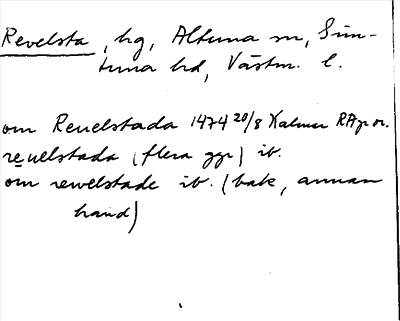 Revelsta, hg, Altuna sn, Sim-
tuna hd, Västm. l.
om Reuelstada 1474 20/8 Kalmar RApr or.
reuelstada (flera ggr) ib.
om rewelstade ib. (bak, annan
hand)